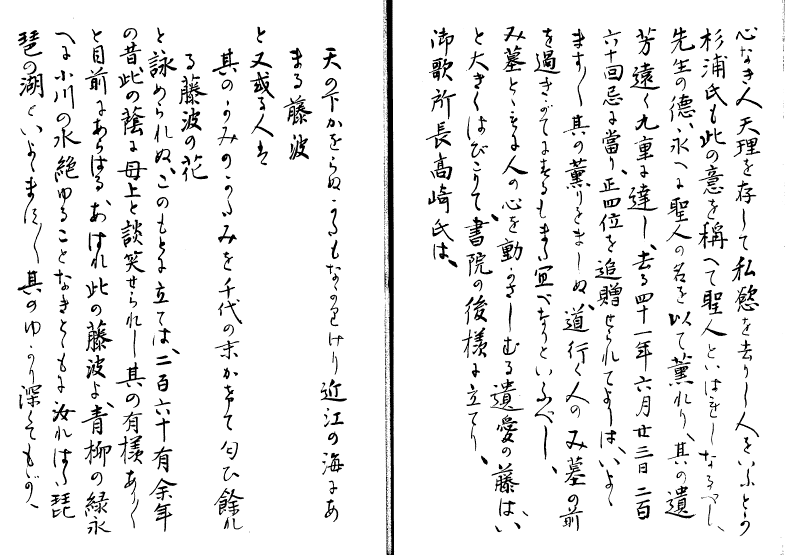 心なき人天理を存して私慾を去りし人をいふとかや
杉浦氏も此の意を稱へて聖人といはをしなるべし、
先生の德、永へに聖人の名を以て薫れり、其の遺
芳遠く九重に達し、去る四十一年六月廿三日二百
六十回忌に當り、正四位を追贈せられてよりは、いよ〱
ます〱其の薫りをましぬ、道行く人のみ墓の前
を過ぎがてにするもまた宜べなりといふべし、
み墓とゝもに人の心を動かさしむる遺愛の藤は、い
と大きくはびこりて、書院の後様に立てり、
御歌所長高崎氏は、
天の下かをらぬかたもなかりけり近江の海にあ
まる藤波
と又或る人は
其のかみのかたみを千代の末かけて匂ひ餘れ
る藤波の花
と詠められぬ、このもとに立ては、二百六十有余年
の昔此の蔭に母上と談笑せられし其の有様あり〱
と目前にあらはる、あはれ此の藤波よ、青柳の緑永
へに小川の水絶ゆることなきとともに汝れはた琵
琶の湖といよ〱ます〱其のゆかり深くてもがな、